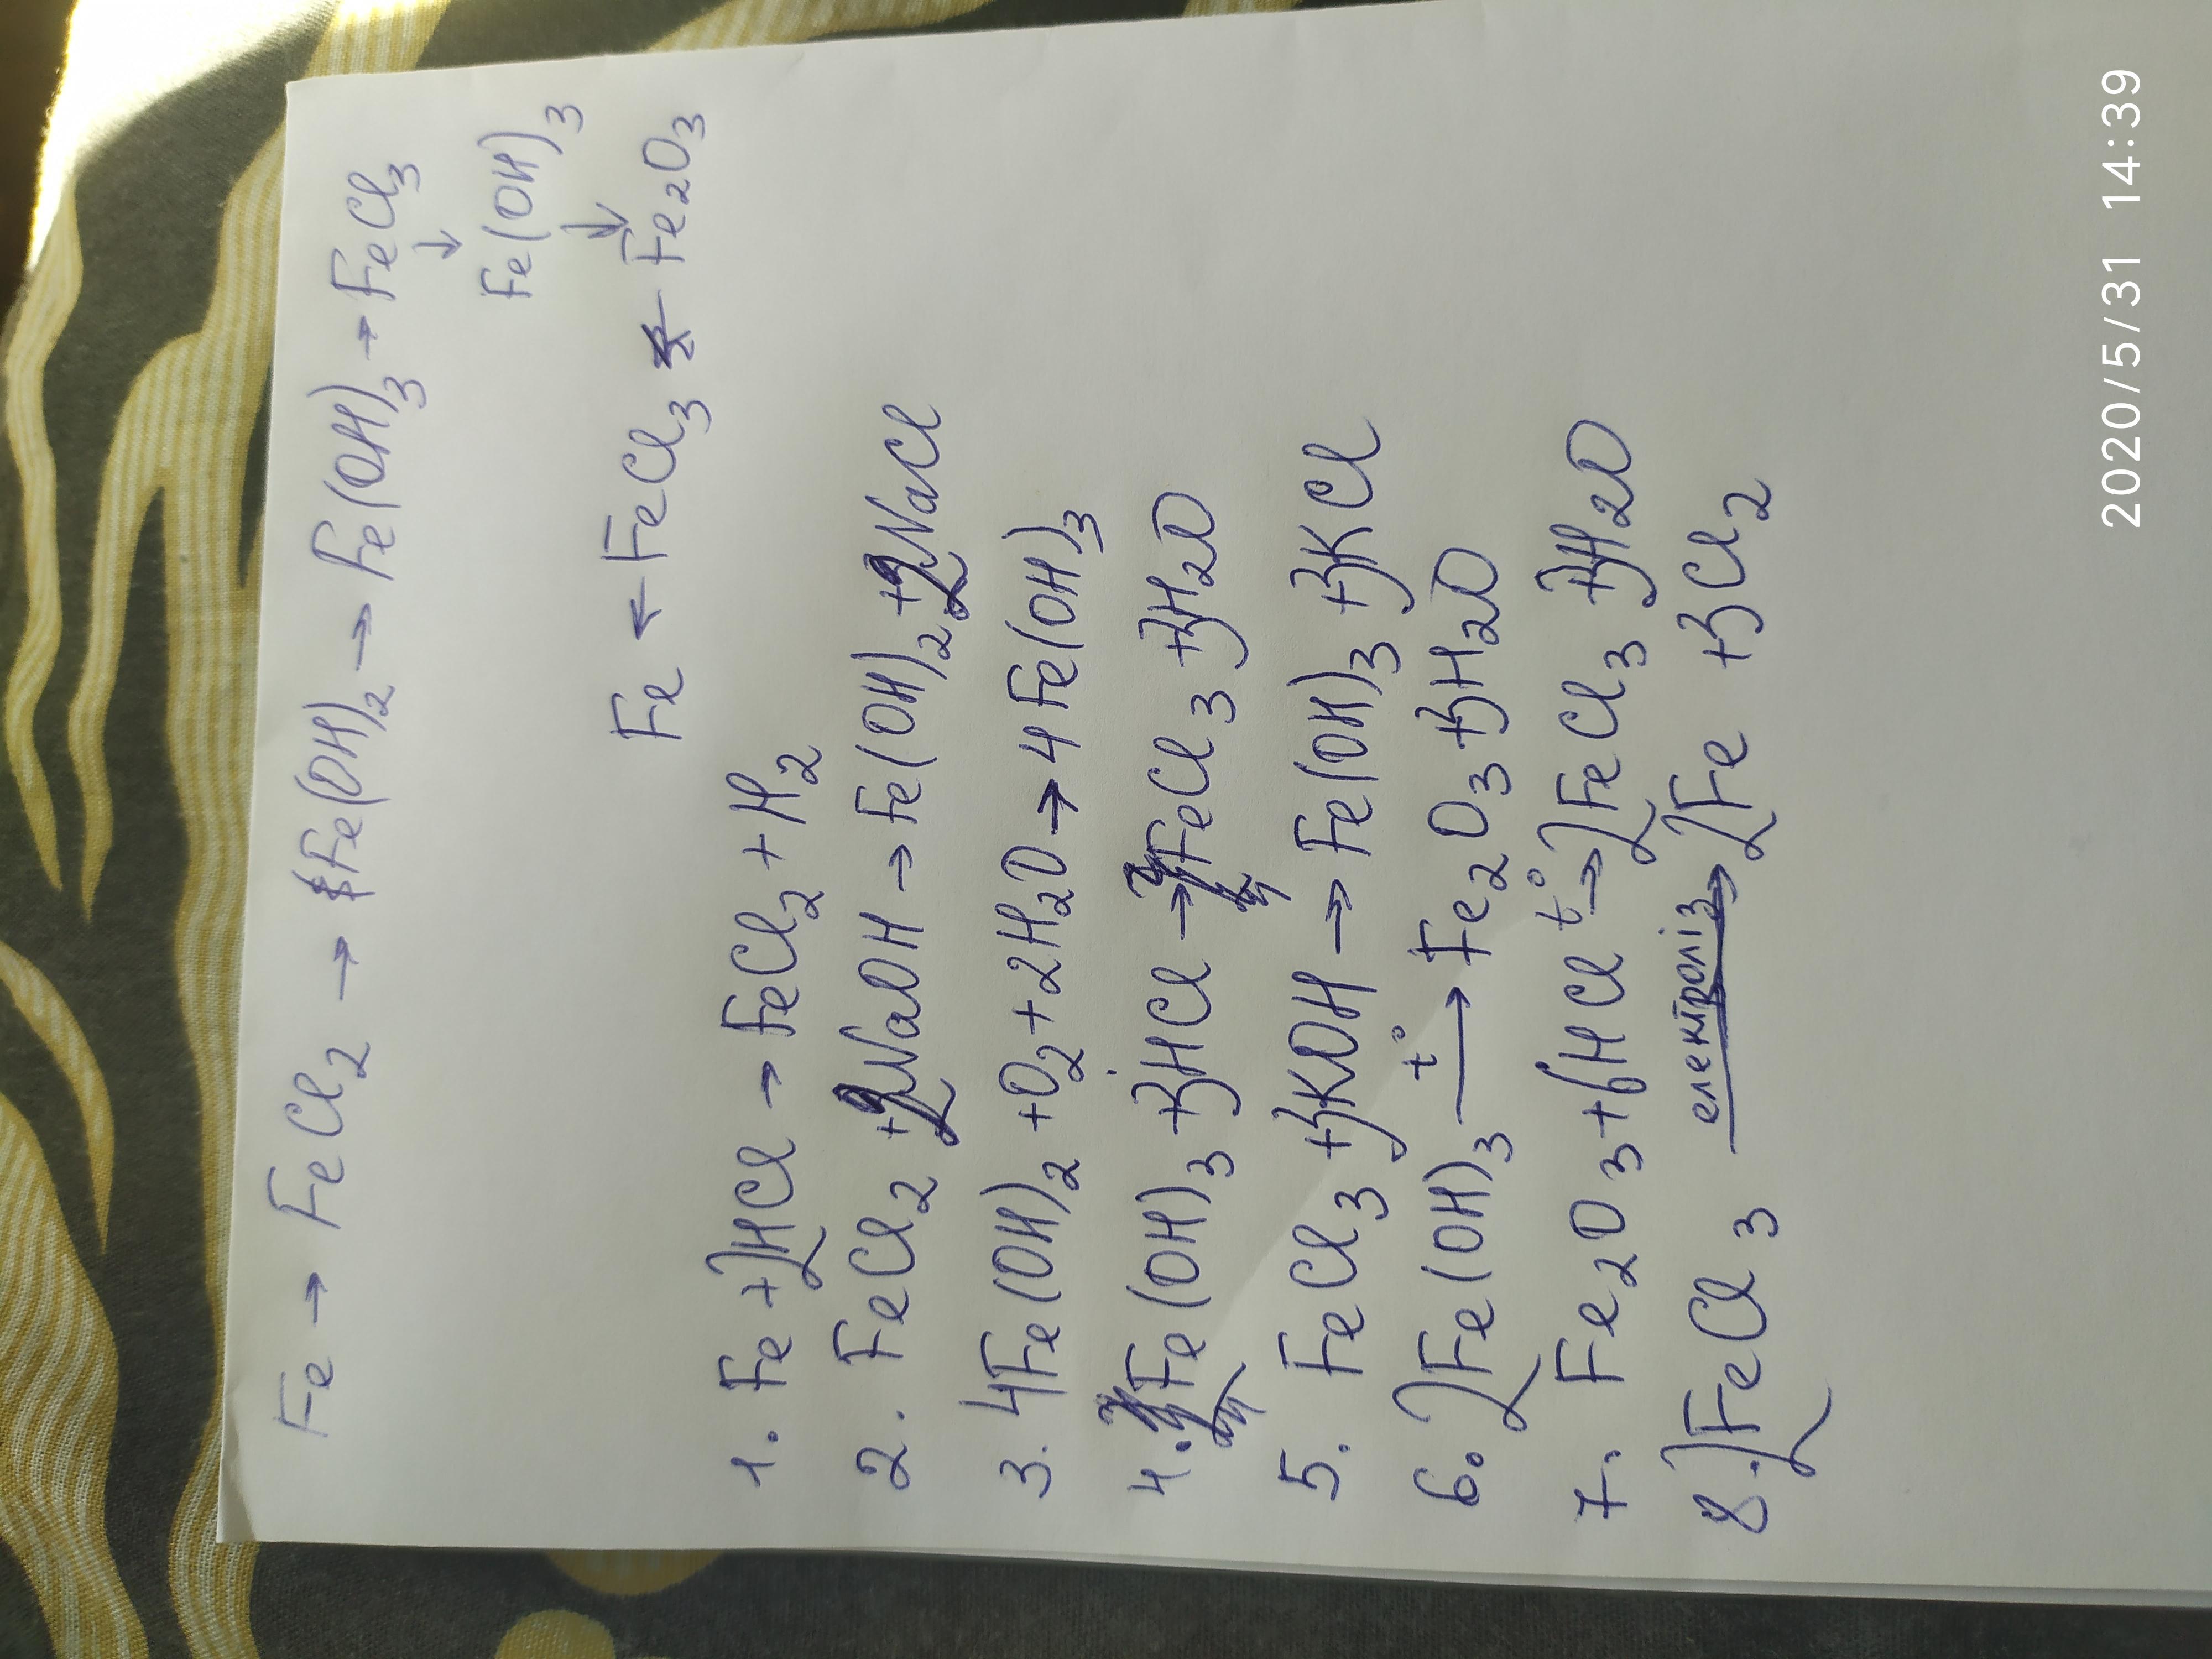 Fe → FeCl₂ → Fe(OH)₂ → Fe(OH)₃ → FeCl₃
↓
Fe(OH)₃
↓
Fe ← FeCl₃ ← Fe₂O₃
1. Fe + 2HCl → FeCl₂ + H₂
2. FeCl₂ + 2NaOH → Fe(OH)₂ + 2NaCl
3. 4Fe(OH)₂ + O₂ + 2H₂O → 4Fe(OH)₃
4. Fe(OH)₃ + 3HCl → FeCl₃ + 3H₂O
5. FeCl₃ + 3KOH → Fe(OH)₃ + 3KCl
6. 2Fe(OH)₃ t°→ Fe₂O₃ + 3H₂O
7. Fe₂O₃ + 6HCl t°→ 2FeCl₃ + 3H₂O
8. 2FeCl₃ електроліз→ 2Fe + 3Cl₂
2020/5/31 14:39